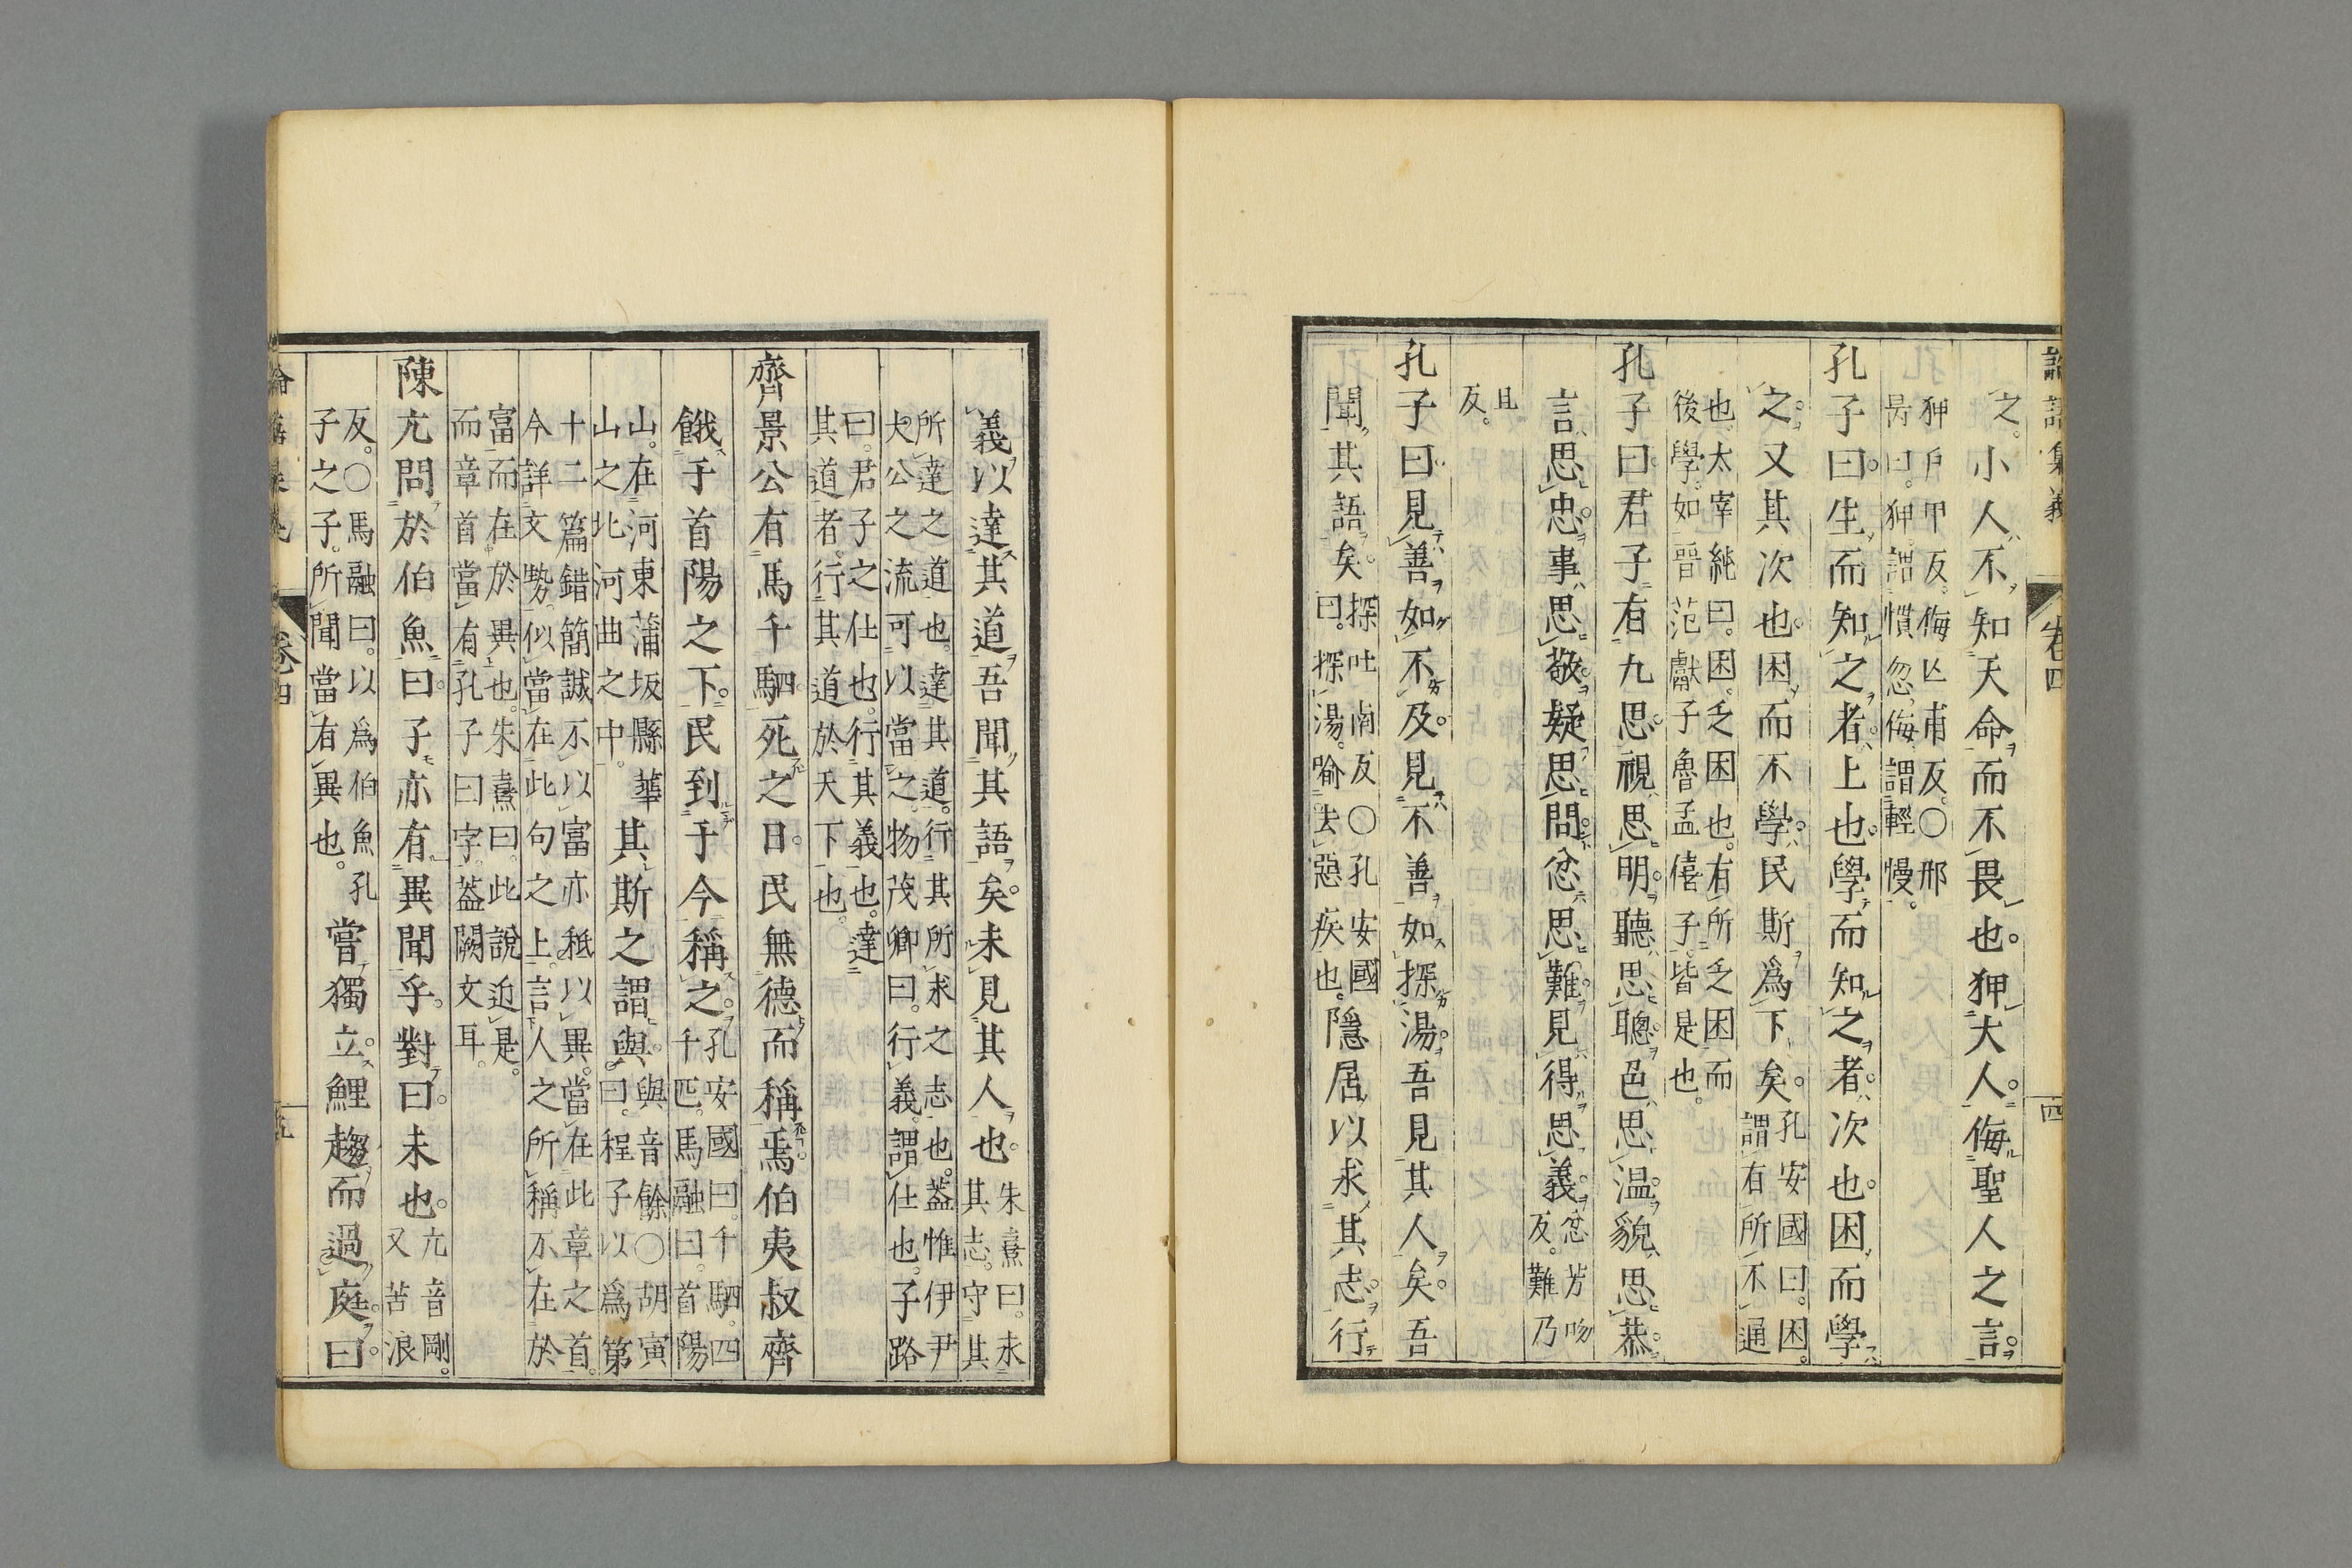 論語集義 卷四 四
之。小人不知天命而不畏也。狎大人。侮聖人之言。
狎戶甲反。侮亡甫反。〇邢
昺曰。狎。謂慣忽。侮。謂輕慢。
孔子曰。生而知之者。上也。學而知之者。次也。困而學
之。又其次也。困而不學。民斯爲下矣。
孔安國曰。困。
謂有所不通
也。太宰純曰。困。乏困也。有所乏困而
後學。如晉范獻子魯孟僖子。皆是也。
孔子曰君子有九思。視思明。聽思聰。色思温。貌思恭。
言思忠。事思敬。疑思問。忿思難。見得思義。
忿芳吻
反。難乃
且
反。
孔子曰見善如不及。見不善如探湯。吾見其人矣。吾
聞其語矣。
探吐南反〇孔安國
曰。探湯。喻去惡疾也。
隱居以求其志。行
義以達其道。吾聞其語矣。未見其人也。
朱熹曰。求
其志。守其
所達之道也。達其道。行其所求之志也。蓋惟伊尹
太公之流可以當之。物茂卿曰。行義。謂仕也。子路
曰。君子之仕也。行其義也。達
其道者。行其道於天下也。
齊景公有馬千駟。死之日。民無德而稱焉。伯夷叔齊
餓于首陽之下。民到于今稱之。
孔安國曰。千駟。四
千匹。馬融曰。首陽
山。在河東蒲坂縣華
山之北河曲之中。
其斯之謂與。
與音餘〇胡寅
曰。程子以爲第
十二篇錯簡誠不以富亦秪以異。當在此章之首。
今詳文勢。似當在此句之上。言人之所稱不在於
富。而在於異也。朱熹曰。此說近是。
而章首當有孔子曰字。蓋闕文耳。
陳亢問於伯魚曰。子亦有異聞乎。對曰。未也。
亢音剛。
又苦浪
反。〇馬融曰。以爲伯魚孔
子之子。所聞當有異也。
嘗獨立。鯉趨而過庭。曰。
卷四